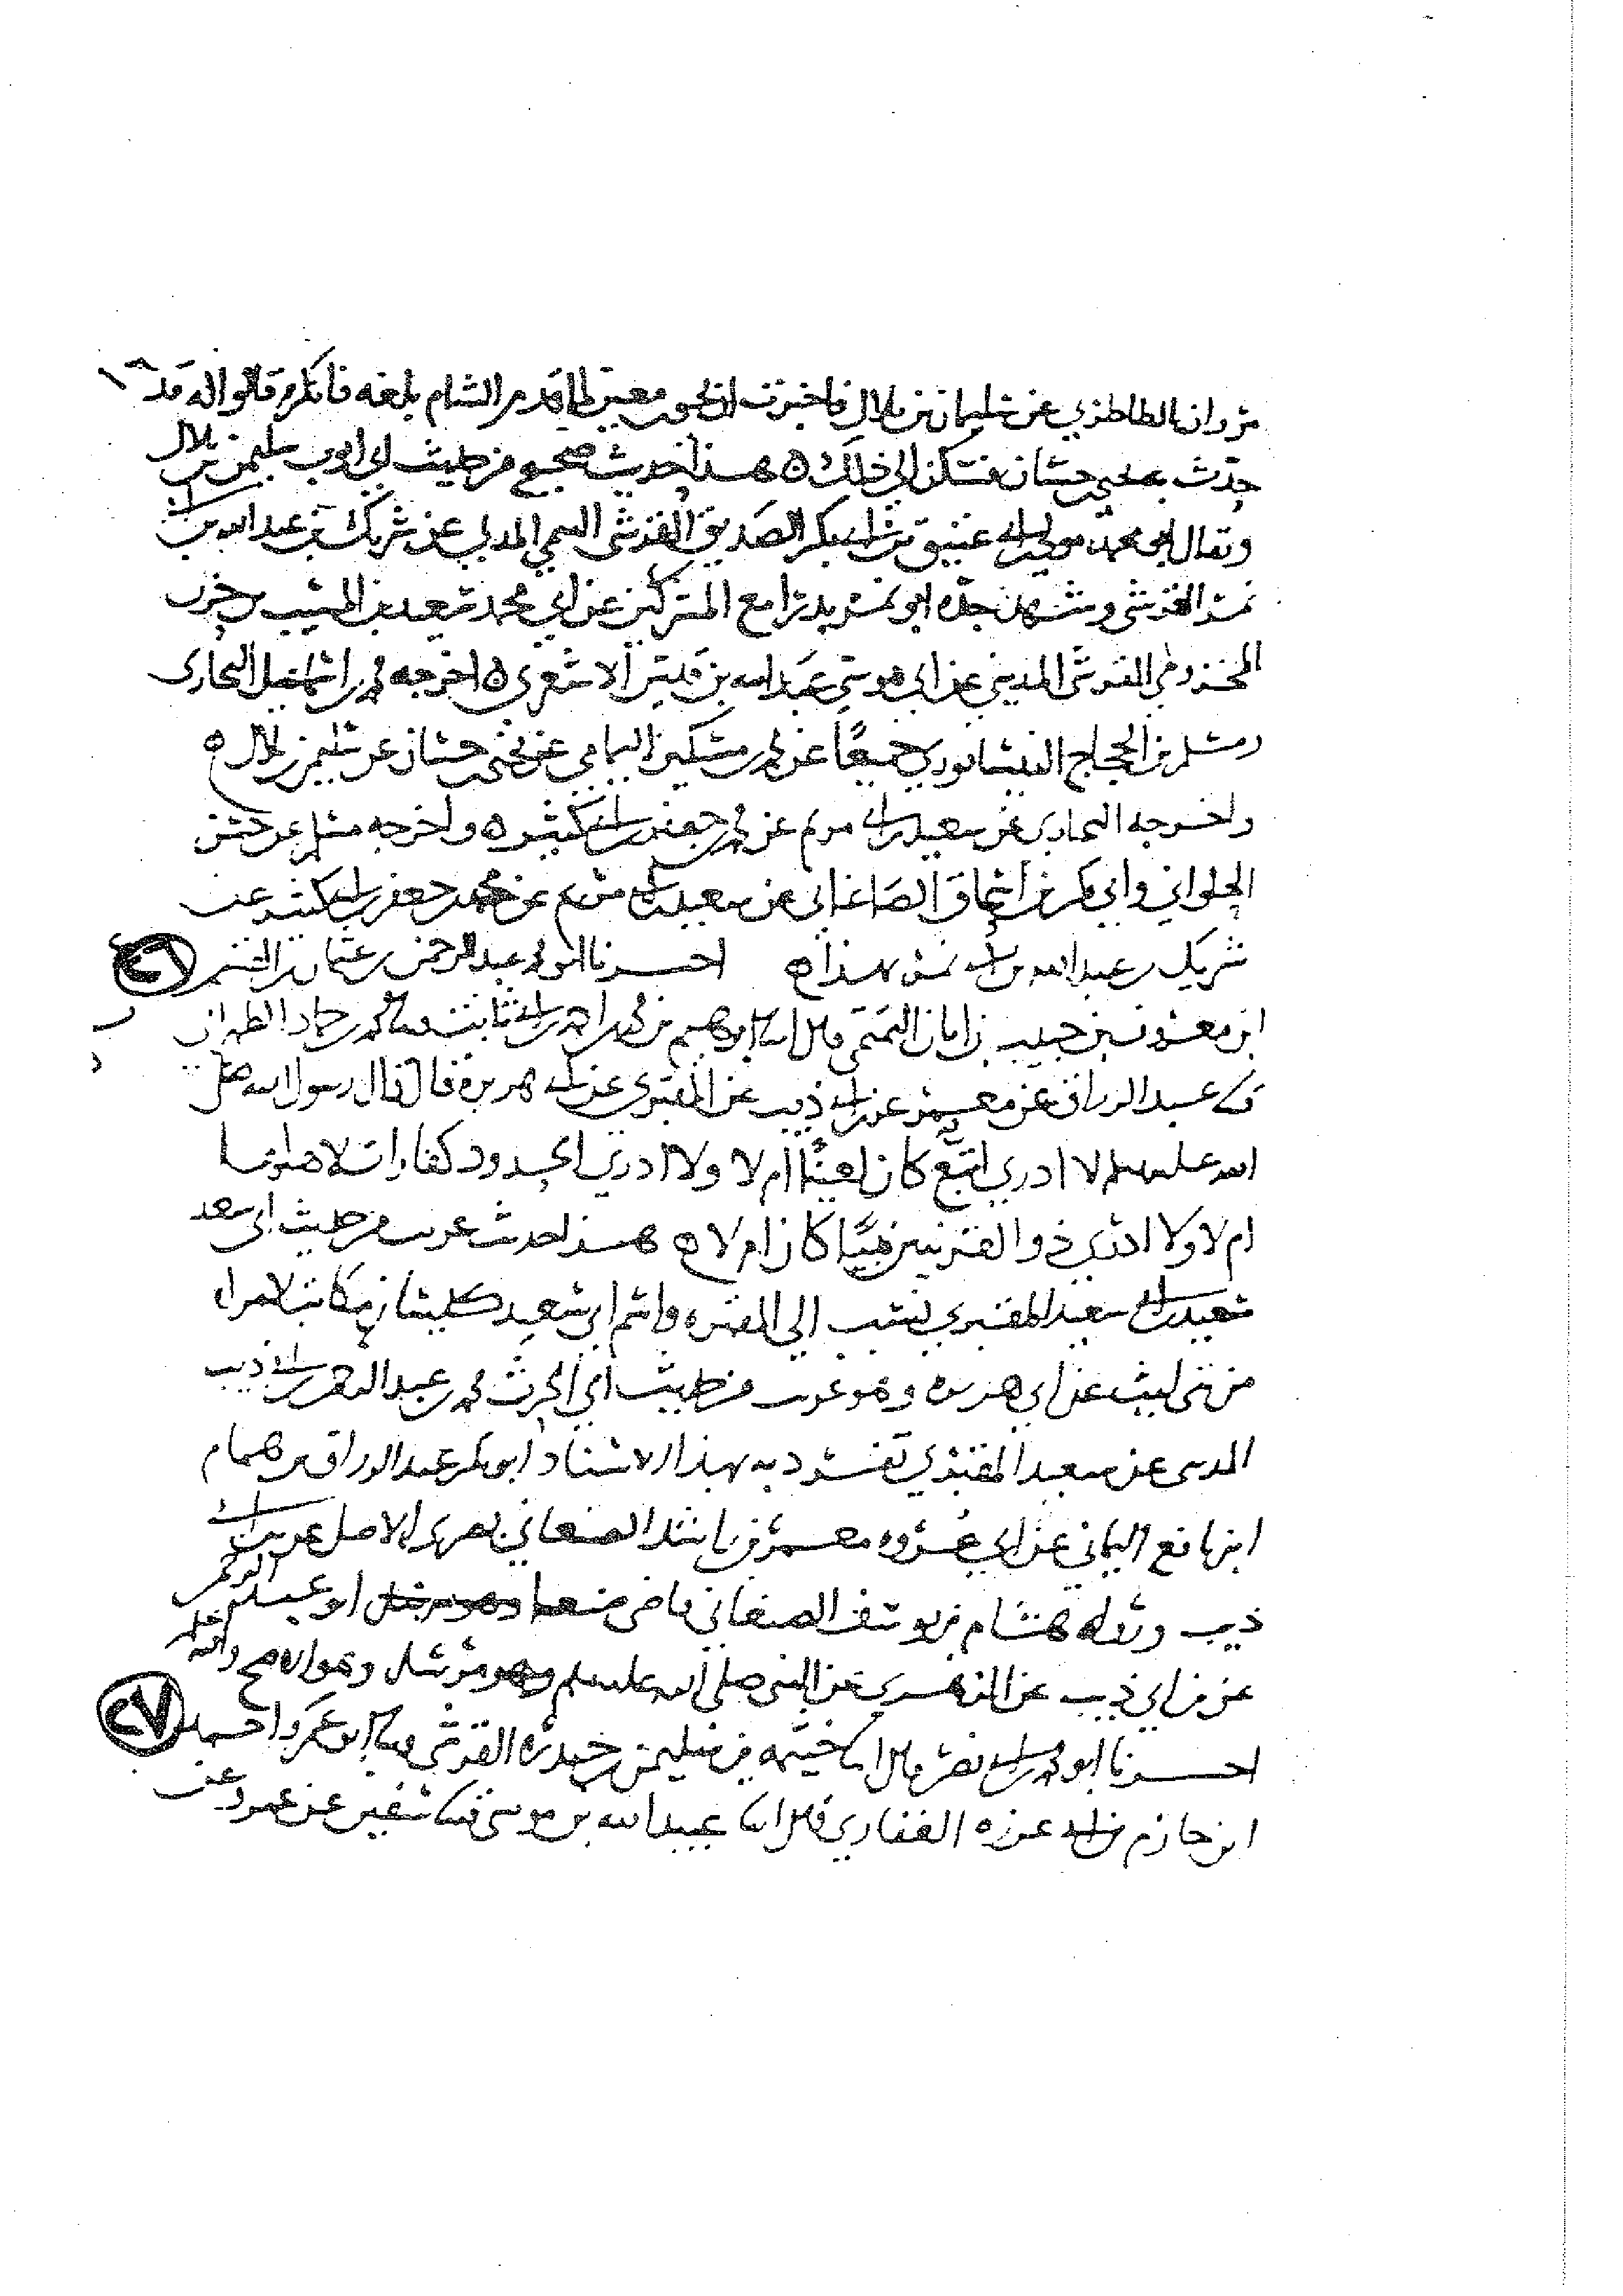 مروان الطاطري عن سليمان بن بلال فاخبرت ان يحيى بن معين لما قدم الشام بلغه فانكره قالوا له قد
حدث به يحيى بن حسان فسكن الى ذلك ه هذا حديث صحيح من حديث ابي ايوب سليمن بن بلال
ويقال ابي محمد مولى ابن ابي عتيق بن ابي بكر الصديق القرشي التيمي المدني عن شريك بن عبد الله بن ابي
نمر القرشي وشهد جده ابو نمر بدرا مع المشركين عن ابي محمد سعيد بن المسيب بن حزن
المخزومي القرشي المديني عن ابي موسى عبد الله بن قيس الاشعري ه اخرجه محمد بن اسماعيل البخاري
ومسلم بن الحجاج النيسابوري جميعا عن محمد بن مسكين اليمامي عن يحيى بن حسان عن سليمن بن بلال ه
واخرجه البخاري عن سعيد بن ابي مريم عن محمد بن جعفر بن ابي كثير ه واخرجه مسلم عن حسن
الحلواني وابي بكر بن اسحاق الصاغاني عن سعيد بن ابي مريم عن محمد بن جعفر بن ابي كثير عن
شريك بن عبد الله بن ابي نمر بهذا ه اخبرنا ابو محمد عبد الرحمن بن عثمان بن القسم ٢٦
ابن معروف بن حبيب بن ابان التميمي قال انا ابرهيم بن محمد بن احمد بن ابي ثابت نا محمد بن حماد الطهراني
نا عبد الرزاق عن معمر عن ابن ابي ذيب عن المقبري عن ابي هريرة قال قال رسول الله صلى
الله عليه وسلم لا ادري اتبع كان لعينا ام لا ولا ادري الحدود كفارات لاهلها
ام لا ولا ادري ذو القرنين نبيا كان ام لا ه هذا حديث غريب من حديث ابي سعد
سعيد بن ابي سعيد المقبري نسب الى المقبره واسم ابي سعيد كيسان مكاتب لامراه
من بني ليث عن ابي هريره وهو غريب من حديث ابي الحرث محمد بن عبد الرحمن بن ابي ذيب
المدني عن سعيد المقبري تفرد به بهذا الاسناد ابو بكر عبد الرزاق بن همام
ابن نافع اليماني عن ابي عروه معمر بن راشد الصنعاني بصري الاصل عن ابن ابي
ذيب ورواه هشام بن يوسف الصنعاني قاضي صنعا ابو عبد الرحمن
عن ابن ابي ذيب عن الزهري عن النبي صلى الله عليه وسلم وهو مرسل وهو الاصح والله اعلم
اخبرنا ابو محمد بن ابي نصر قال انا خيثمه بن سليمن بن حيدره القرشي نا ابو عمرو احمد ٢٧
ابن حازم بن ابي غرزه الغفاري قال انا عبيد الله بن موسى نا سفين عن عمرو عن